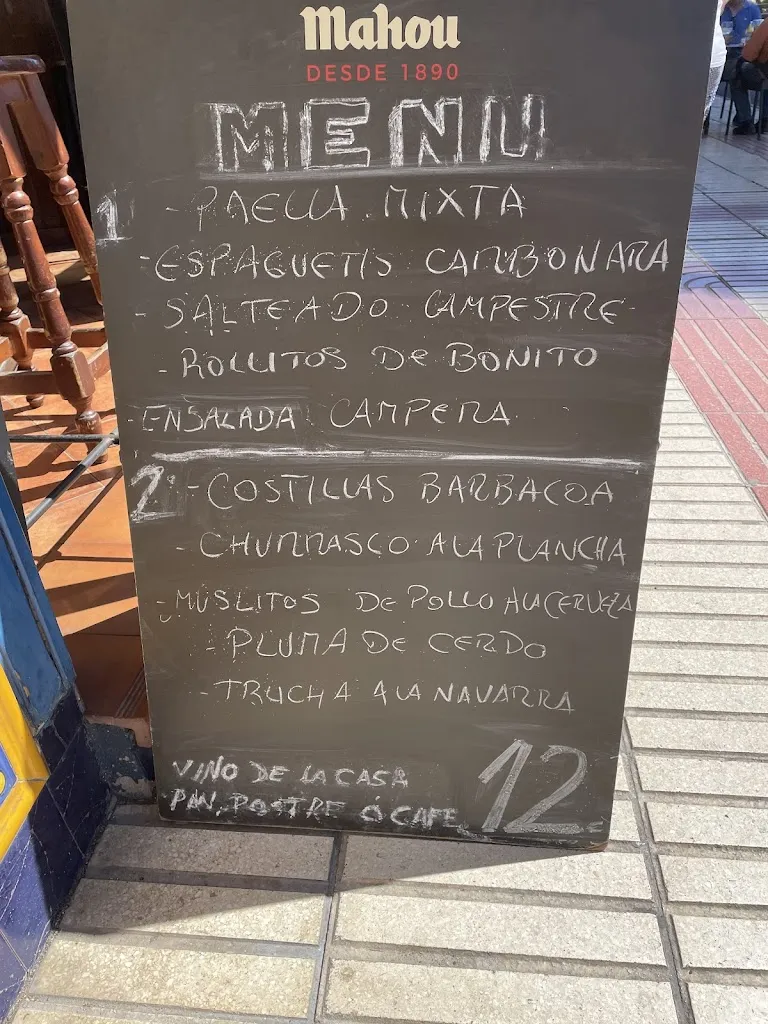 Mahou
DESDE 1890
MENU
1 - PAELLA MIXTA
- ESPAGUETIS CARBONARA
- SALTEADO CAMPESTRE
- ROLLITOS DE BONITO
- ENSALADA CAMPERA
2º - COSTILLAS BARBACOA
- CHURRASCO A LA PLANCHA
- MUSLITOS DE POLLO A LA CERVEZA
- PLUMA DE CERDO
- TRUCHA A LA NAVARRA
VINO DE LA CASA
PAN, POSTRE Ó CAFE 12